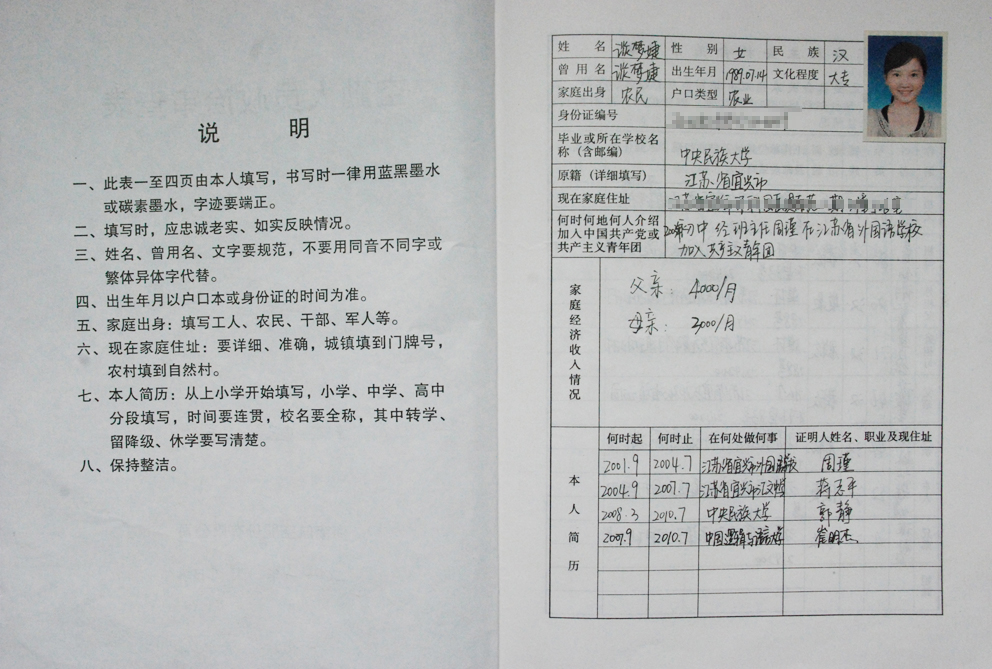 说 明
一、此表一至四页由本人填写，书写时一律用蓝黑墨水
或碳素墨水，字迹要端正。
二、填写时，应忠诚老实、如实反映情况。
三、姓名、曾用名、文字要规范，不要用同音不同字或
繁体异体字代替。
四、出生年月以户口本或身份证的时间为准。
五、家庭出身：填写工人、农民、干部、军人等。
六、现在家庭住址：要详细、准确，城镇填到门牌号，
农村填到自然村。
七、本人简历：从上小学开始填写，小学、中学、高中
分段填写，时间要连贯，校名要全称，其中转学、
留降级、休学要写清楚。
八、保持整洁。
姓 名 谈梦婕 性 别 女 民 族 汉
曾用名 谈梦婕 出生年月 1989.07.14 文化程度 大专
家庭出身 农民 户口类型 农业
身份证编号
毕业或所在学校名
称（含邮编） 中央民族大学
原籍（详细填写） 江苏省宜兴市
现在家庭住址
何时何地何人介绍
加入中国共产党或
共产主义青年团
初中 经班主任周瑾在江苏省外国语学校
加入共产主义青年团
家庭经济收入情况
父亲：4000/月
母亲：3000/月
本人简历
何时起 何时止 在何处做何事 证明人姓名、职业及现住址
2001.9 2004.7 江苏省宜兴市外国语学校 周瑾
2004.9 2007.7 江苏省宜兴市 蒋志平
2008.3 2010.7 中央民族大学 郭静
2007.9 2010.7 中国逻辑与语言大学 崔明杰